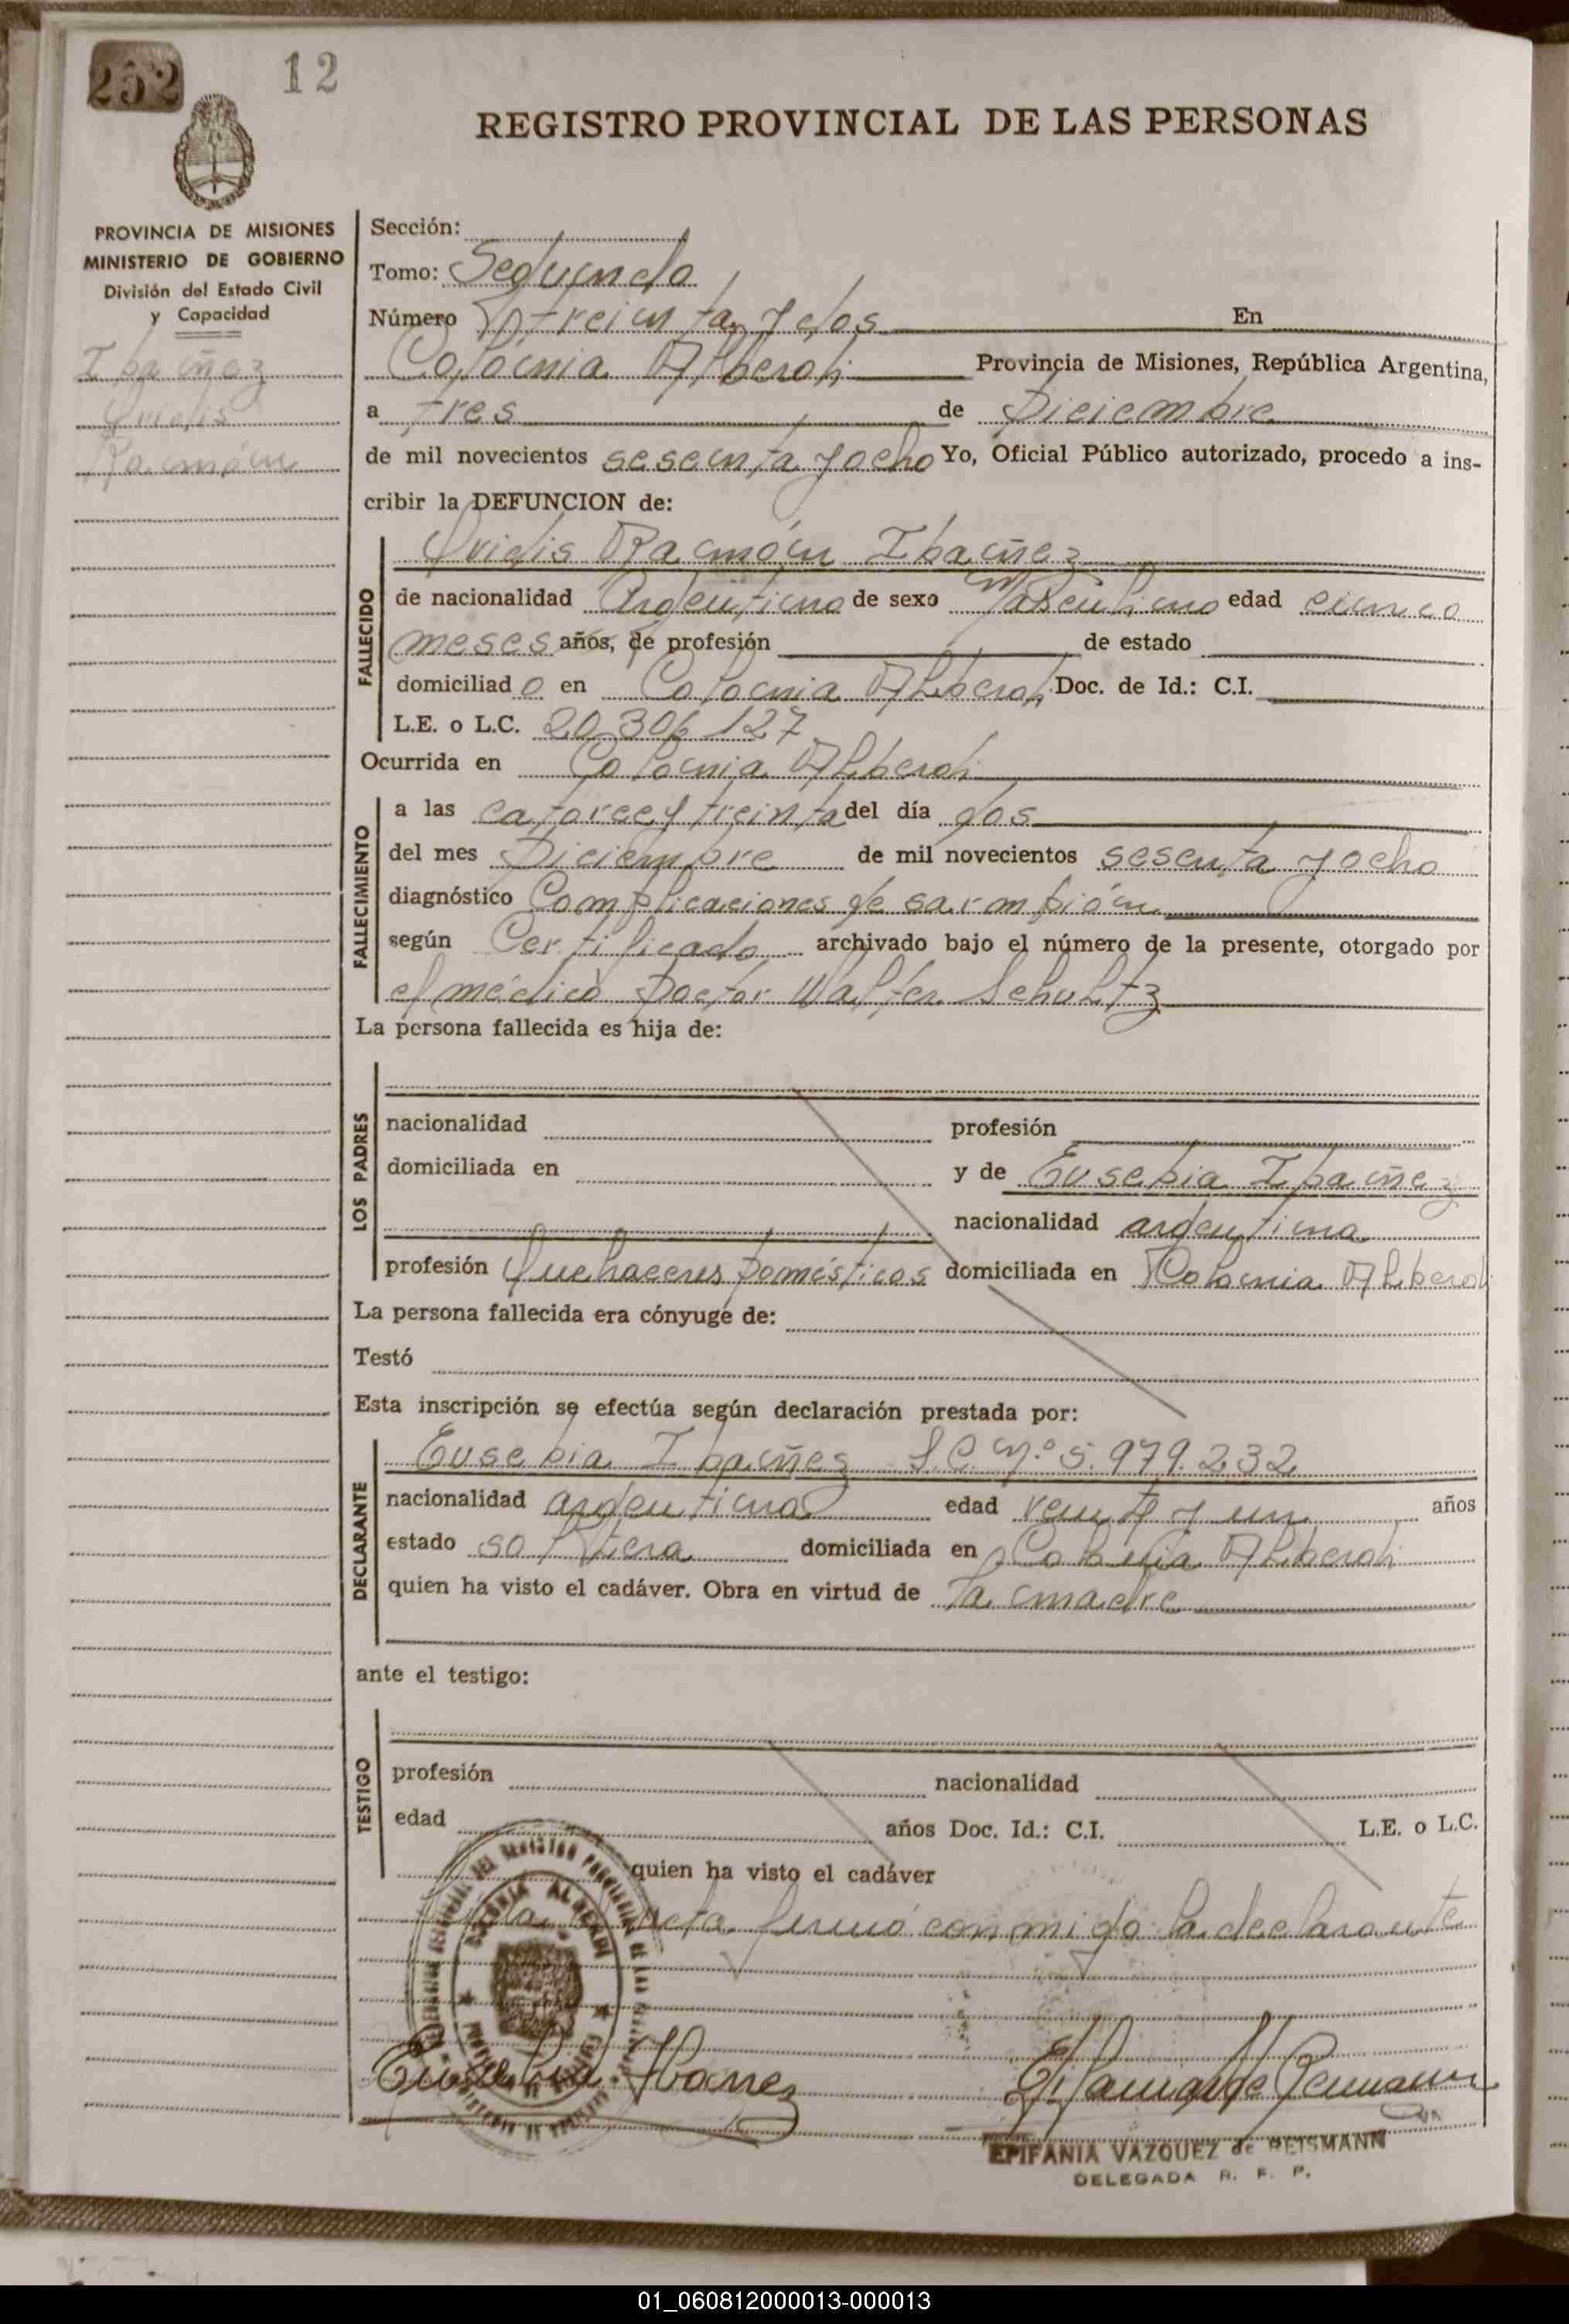 252
12
REGISTRO PROVINCIAL DE LAS PERSONAS
PROVINCIA DE MISIONES
MINISTERIO DE GOBIERNO
División del Estado Civil
y Capacidad
Ibañez
Ovidis
Ramón
Sección:
Tomo: Segundo
Número treinta y dos En
Colonia Alberdi Provincia de Misiones, República Argentina,
a tres de Diciembre
de mil novecientos sesenta y ocho Yo, Oficial Público autorizado, procedo a ins-
cribir la DEFUNCION de:
FALLECIDO
Ovidis Ramón Ibañez
de nacionalidad Argentino de sexo Masculino edad cinco
meses años, de profesión de estado
domiciliado en Colonia Alberdi Doc. de Id.: C.I.
L.E. o L.C. 20.306.127
Ocurrida en Colonia Alberdi
FALLECIMIENTO
a las catorce y treinta del día dos
del mes Diciembre de mil novecientos sesenta y ocho
diagnóstico Complicaciones de sarampión
según Certificado archivado bajo el número de la presente, otorgado por
el médico Doctor Walter Schultz
La persona fallecida es hija de:
LOS PADRES
nacionalidad profesión
domiciliada en y de Eusebia Ibañez
nacionalidad argentina
profesión Quehaceres Domésticos domiciliada en Colonia Alberdi
La persona fallecida era cónyuge de:
Testó
Esta inscripción se efectúa según declaración prestada por:
DECLARANTE
Eusebia Ibañez L.C. Nº 5.979.232
nacionalidad argentina edad veinte y un años
estado soltera domiciliada en Colonia Alberdi
quien ha visto el cadáver. Obra en virtud de la madre
ante el testigo:
TESTIGO
profesión nacionalidad
edad años Doc. Id.: C.I. L.E. o L.C.
quien ha visto el cadáver
acta firmó conmigo la declarante
COLONIA ALBERDI
Eusebia Ibanez
EPIFANIA VAZQUEZ de REISMANN
DELEGADA R. F. P.
01_060812000013-000013